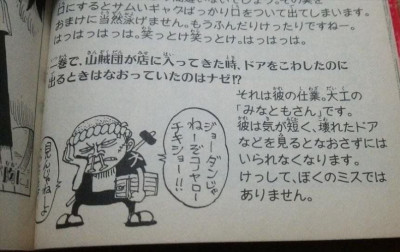 口にするとサムいギャグばっかり口をついて出てしまいます。
おまけに当然泳げません。もうふんだりけったりですねー。
はっはっはっは。笑っとけ笑っとけ。はっはっはっは。
一巻で、山賊団が店に入ってきた時、ドアをこわしたのに
出るときはなおっていたのはナゼ!?
それは彼の仕業。大工の
「みなともさん」です。
彼は気が短く、壊れたドア
などを見るとなおさずには
いられなくなります。
けっして、ぼくのミスでは
ありません。
ジョーダンじゃ
ねーぞコノヤロー
チキショー!!